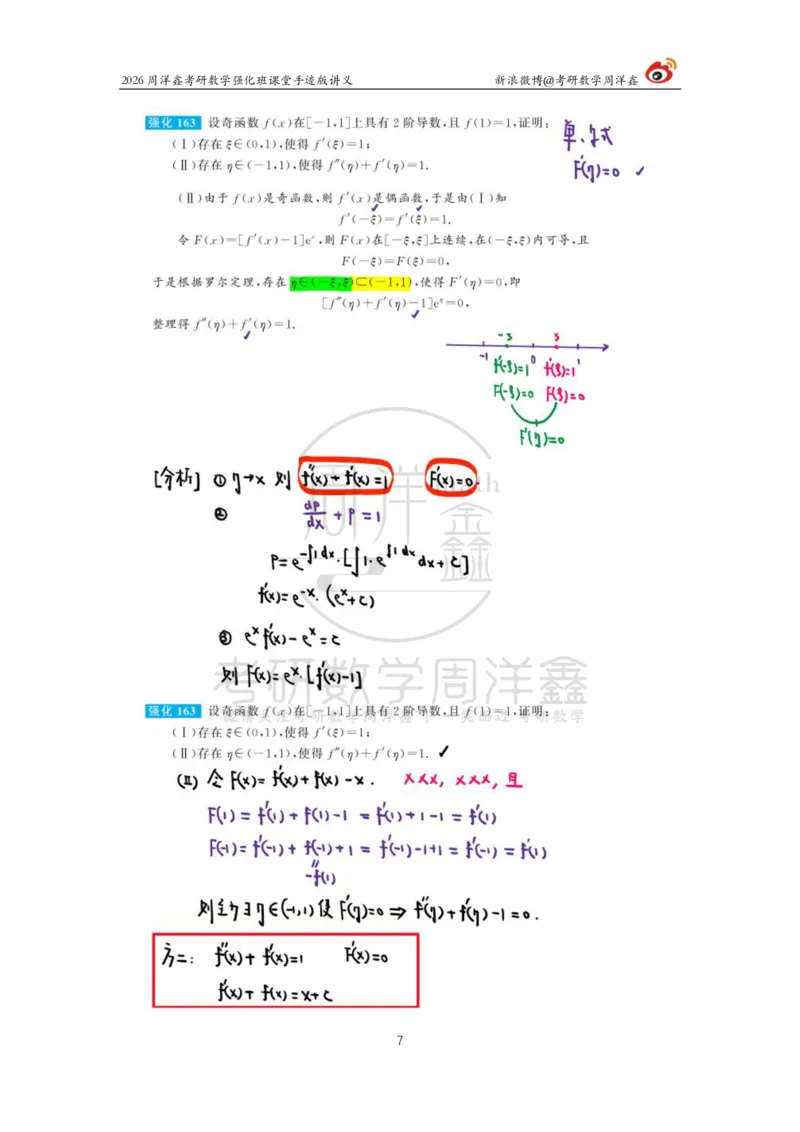 2026周洋鑫考研数学强化班课堂手迹版讲义 新浪微博@考研数学周洋鑫
强化 163 设奇函数 f(x)在[-1,1]上具有2阶导数,且 f(1)=1,证明:
(Ⅰ)存在 ξ∈(0,1),使得 f′(ξ)=1;
(Ⅱ)存在 η∈(-1,1),使得 f″(η)+f′(η)=1.
单.
F′(η)=0 ✓
(Ⅱ)由于 f(x)是奇函数,则 f′(x)是偶函数,于是由(Ⅰ)知
f′(-ξ)=f′(ξ)=1.
令 F(x)=[f′(x)-1]eˣ,则 F(x)在[-ξ,ξ]上连续,在(-ξ,ξ)内可导,且
F(-ξ)=F(ξ)=0,
于是根据罗尔定理,存在 η∈(-ξ,ξ)⊂(-1,1),使得 F′(η)=0,即
[f″(η)+f′(η)-1]e^η=0,
整理得 f″(η)+f′(η)=1.
-ξ ξ
-1 0 1
f′(-ξ)=1 f′(ξ)=1
F(-ξ)=0 F(ξ)=0
F′(η)=0
[分析] ① η→x 则 f″(x)+f′(x)=1 F′(x)=0.
② dp/dx + P = 1
P=e^{-∫1dx}·[∫1·e^{∫1dx}dx+C]
f′(x)=e^{-x}·(eˣ+C)
③ eˣf′(x)-eˣ=C
则 F(x)=eˣ·[f′(x)-1]
考研数学周洋鑫
强化 163 设奇函数 f(x)在[-1,1]上具有2阶导数,且 f(1)=1,证明:
(Ⅰ)存在 ξ∈(0,1),使得 f′(ξ)=1;
(Ⅱ)存在 η∈(-1,1),使得 f″(η)+f′(η)=1. ✓
(Ⅱ) 令 F(x)=f′(x)+f(x)-x. xxx, xxx, 且
F(1)=f′(1)+f(1)-1=f′(1)+1-1=f′(1)
F(-1)=f′(-1)+f(-1)+1=f′(-1)-1+1=f′(-1)=f′(1)
-f(1)
则至少∃η∈(-1,1)使F′(η)=0⇒f″(η)+f′(η)-1=0.
方二: f″(x)+f′(x)=1 F′(x)=0
f′(x)+f(x)=x+C
7